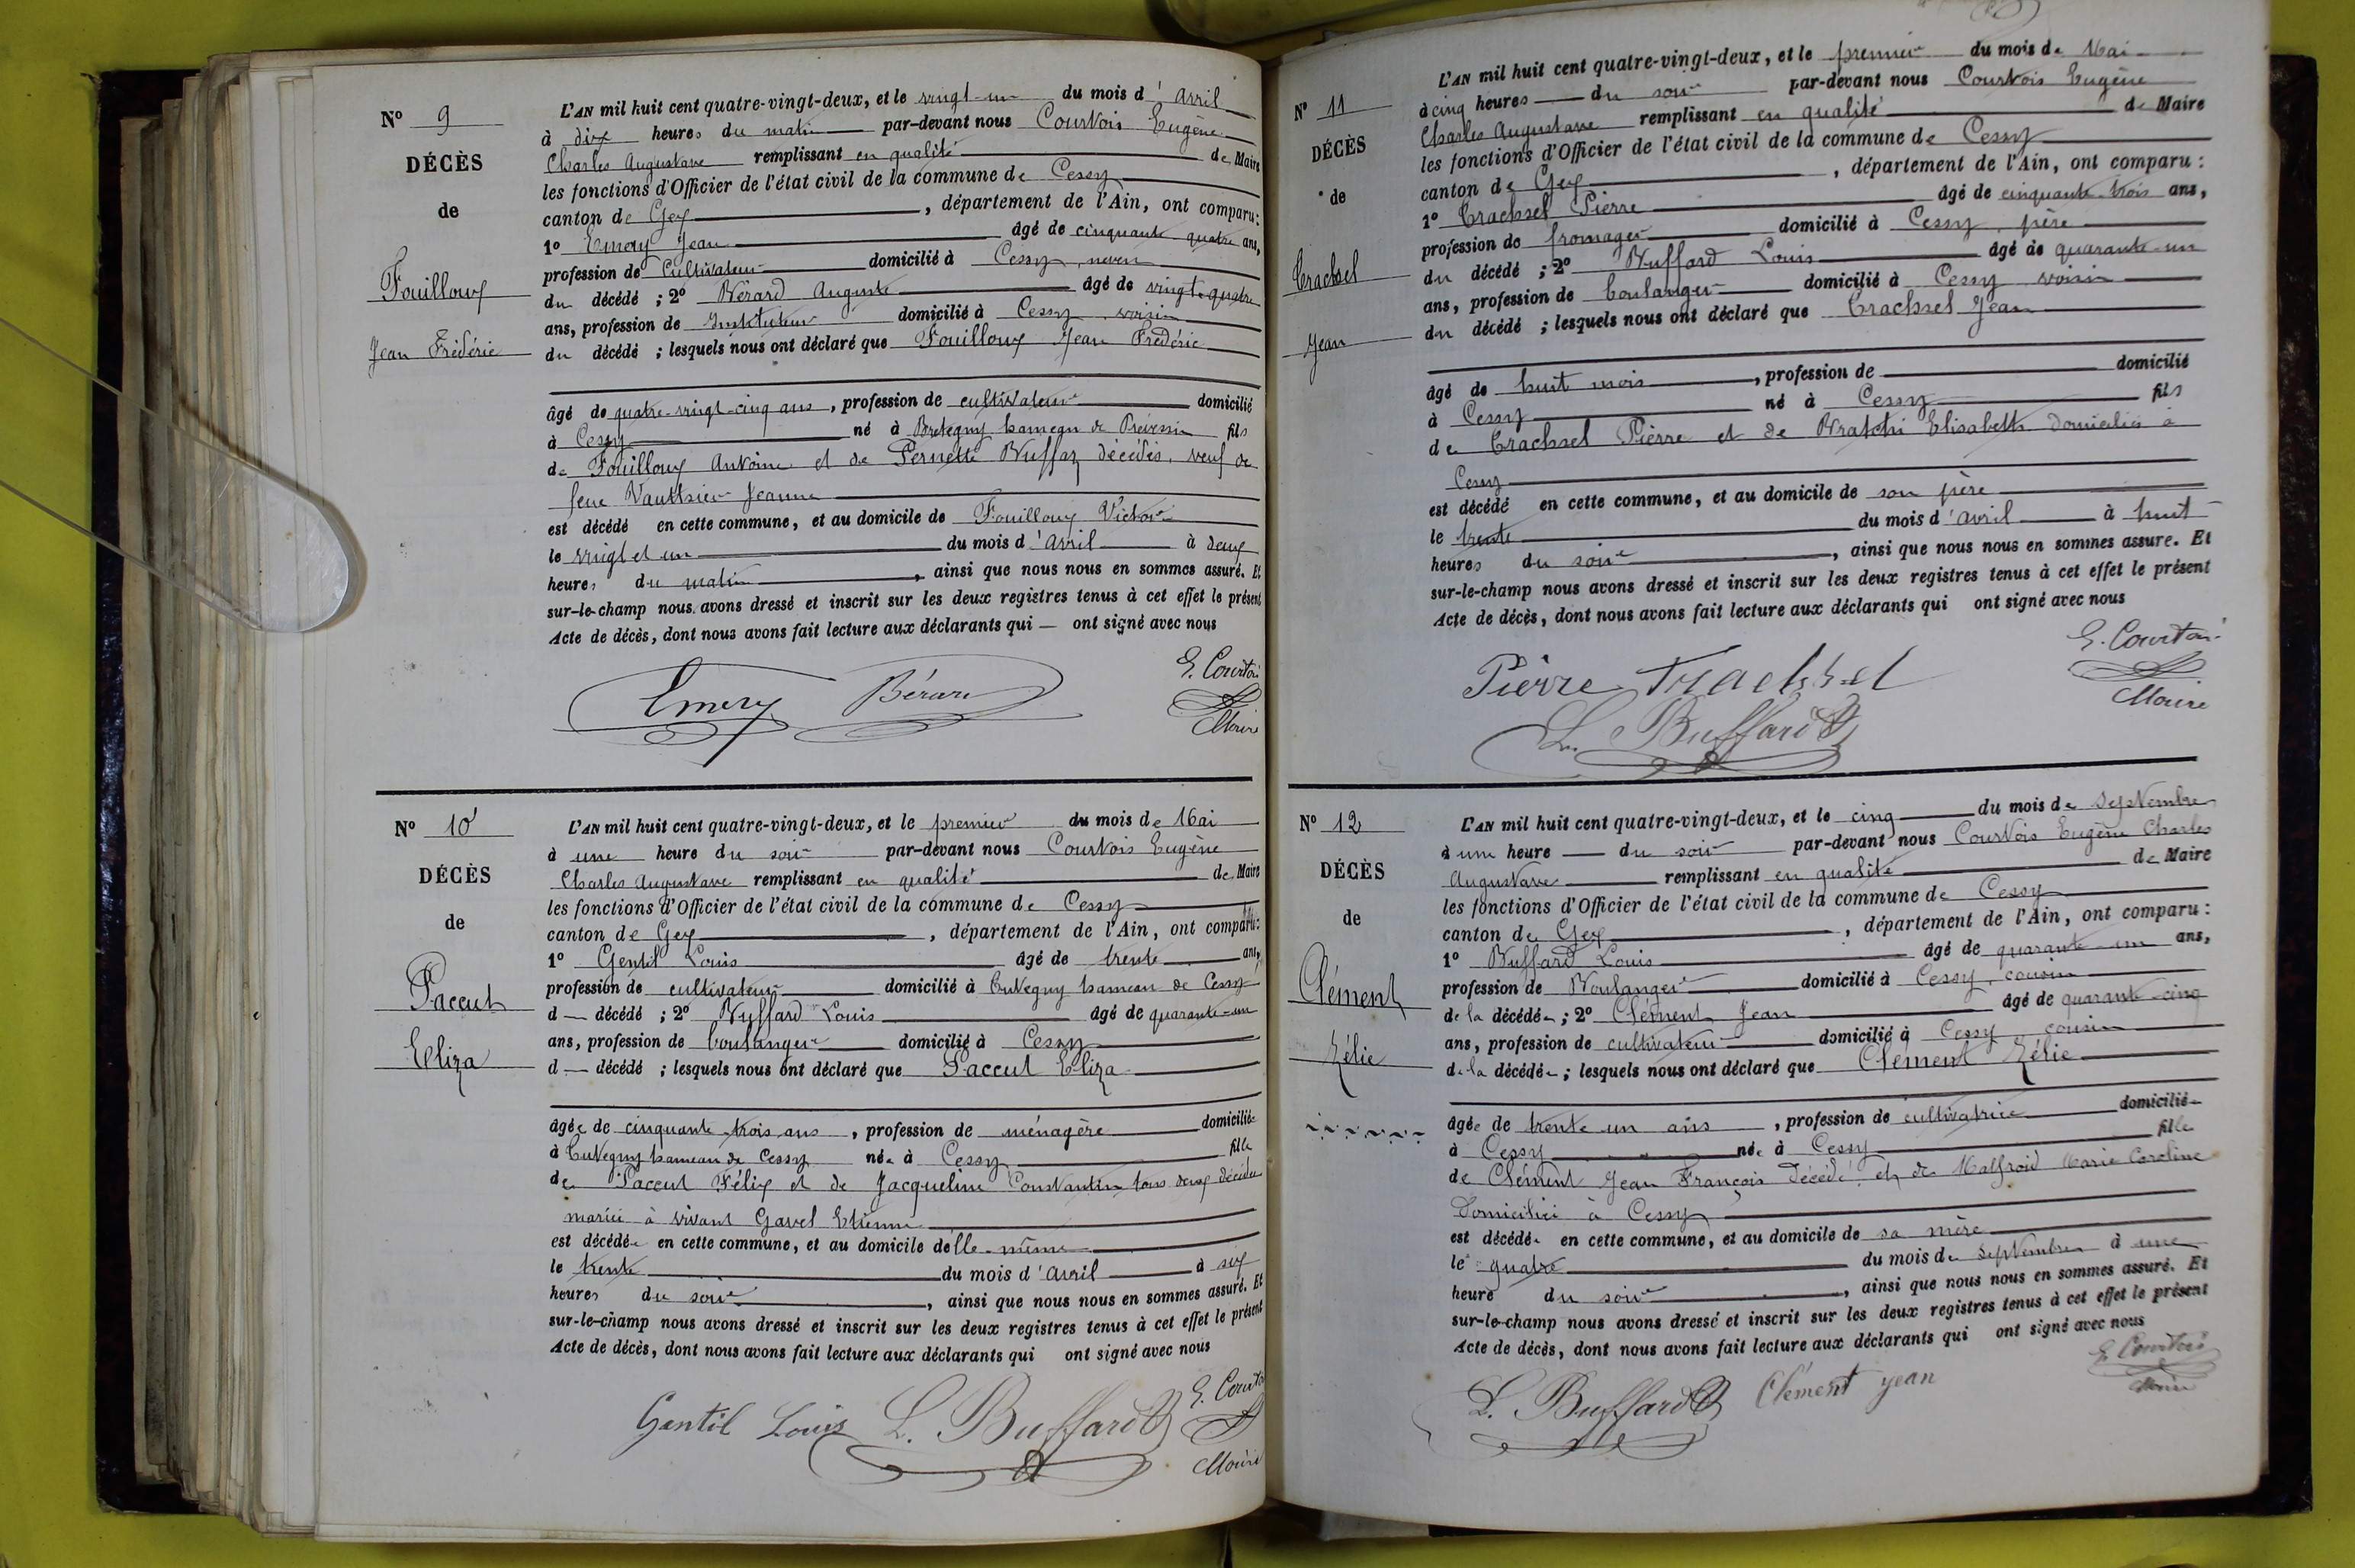 N° 9
DÉCÈS
de
Fouilloux
Jean Frédéric
L'AN mil huit cent quatre-vingt-deux, et le vingt-un du mois d'Avril
à dix heures du matin par-devant nous Courtois Eugène
Charles Augustave remplissant en qualité de Maire
les fonctions d'Officier de l'état civil de la commune de Cessy
canton de Gex, département de l'Ain, ont comparu :
1° Emery Jean âgé de cinquante-quatre ans,
profession de Cultivateur domicilié à Cessy, neveu
du décédé ; 2° Bérard Auguste âgé de vingt-quatre
ans, profession de Instituteur domicilié à Cessy voisin
du décédé ; lesquels nous ont déclaré que Fouilloux Jean Frédéric
âgé de quatre-vingt-cinq ans, profession de cultivateur domicilié
à Cessy né à Bretegny hameau de Prévessin fils
de Fouilloux Antoine et de Pernette Buffaz décédés, veuf de
feue Vauthier Jeanne
est décédé en cette commune, et au domicile de Fouilloux Victor
le vingt et un du mois d'Avril à deux
heures du matin, ainsi que nous nous en sommes assuré. Et
sur-le-champ nous avons dressé et inscrit sur les deux registres tenus à cet effet le présent
Acte de décès, dont nous avons fait lecture aux déclarants qui — ont signé avec nous
Emery Bérard E. Courtois
Maire
N° 10
DÉCÈS
de
Paccut
Eliza
L'AN mil huit cent quatre-vingt-deux, et le premier du mois de Mai
à une heure du soir par-devant nous Courtois Eugène
Charles Augustave remplissant en qualité de Maire
les fonctions d'Officier de l'état civil de la commune de Cessy
canton de Gex, département de l'Ain, ont comparu :
1° Gentil Louis âgé de trente ans,
profession de cultivateur domicilié à Tutegny hameau de Cessy
d— décédé ; 2° Buffard Louis âgé de quarante-un
ans, profession de boulanger domicilié à Cessy
d— décédé ; lesquels nous ont déclaré que Paccut Eliza
âgée de cinquante-trois ans, profession de ménagère domiciliée
à Tutegny hameau de Cessy née à Cessy fille
de Paccut Félix et de Jacqueline Constantin tous deux décédés
mariée à vivant Gavel Etienne
est décédée en cette commune, et au domicile delle-même
le trente du mois d'Avril à six
heures du soir, ainsi que nous nous en sommes assuré. Et
sur-le-champ nous avons dressé et inscrit sur les deux registres tenus à cet effet le présent
Acte de décès, dont nous avons fait lecture aux déclarants qui ont signé avec nous
Gentil Louis L. Buffard E. Courtois
Maire
N° 11
DÉCÈS
de
Trachsel
Jean
L'AN mil huit cent quatre-vingt-deux, et le premier du mois de Mai
à cinq heures du soir par-devant nous Courtois Eugène
Charles Augustave remplissant en qualité de Maire
les fonctions d'Officier de l'état civil de la commune de Cessy
canton de Gex, département de l'Ain, ont comparu :
1° Trachsel Pierre âgé de cinquante-trois ans,
profession de fromager domicilié à Cessy, père
du décédé ; 2° Buffard Louis âgé de quarante-un
ans, profession de boulanger domicilié à Cessy voisin
du décédé ; lesquels nous ont déclaré que Trachsel Jean
âgé de huit mois, profession de domicilié
à Cessy né à Cessy fils
de Trachsel Pierre et de Bratchi Elisabeth domiciliés à
Cessy
est décédé en cette commune, et au domicile de son père
le trente du mois d'Avril à huit
heures du soir, ainsi que nous nous en sommes assuré. Et
sur-le-champ nous avons dressé et inscrit sur les deux registres tenus à cet effet le présent
Acte de décès, dont nous avons fait lecture aux déclarants qui ont signé avec nous
Pierre Trachsel E. Courtois
L. Buffard Maire
N° 12
DÉCÈS
de
Clément
Zélie
L'AN mil huit cent quatre-vingt-deux, et le cinq du mois de Septembre
à une heure du soir par-devant nous Courtois Eugène Charles
Augustave remplissant en qualité de Maire
les fonctions d'Officier de l'état civil de la commune de Cessy
canton de Gex, département de l'Ain, ont comparu :
1° Buffard Louis âgé de quarante-un ans,
profession de Boulanger domicilié à Cessy, cousin
de la décédée ; 2° Clément Jean âgé de quarante-cinq
ans, profession de cultivateur domicilié à Cessy, cousin
de la décédée ; lesquels nous ont déclaré que Clément Zélie
âgée de trente un ans, profession de cultivatrice domiciliée
à Cessy née à Cessy fille
de Clément Jean François décédé et de Malfroid Marie Caroline
Domiciliée à Cessy
est décédée en cette commune, et au domicile de sa mère
le quatre du mois de Septembre à une
heure du soir, ainsi que nous nous en sommes assuré. Et
sur-le-champ nous avons dressé et inscrit sur les deux registres tenus à cet effet le présent
Acte de décès, dont nous avons fait lecture aux déclarants qui ont signé avec nous
L. Buffard Clément Jean E. Courtois
Maire